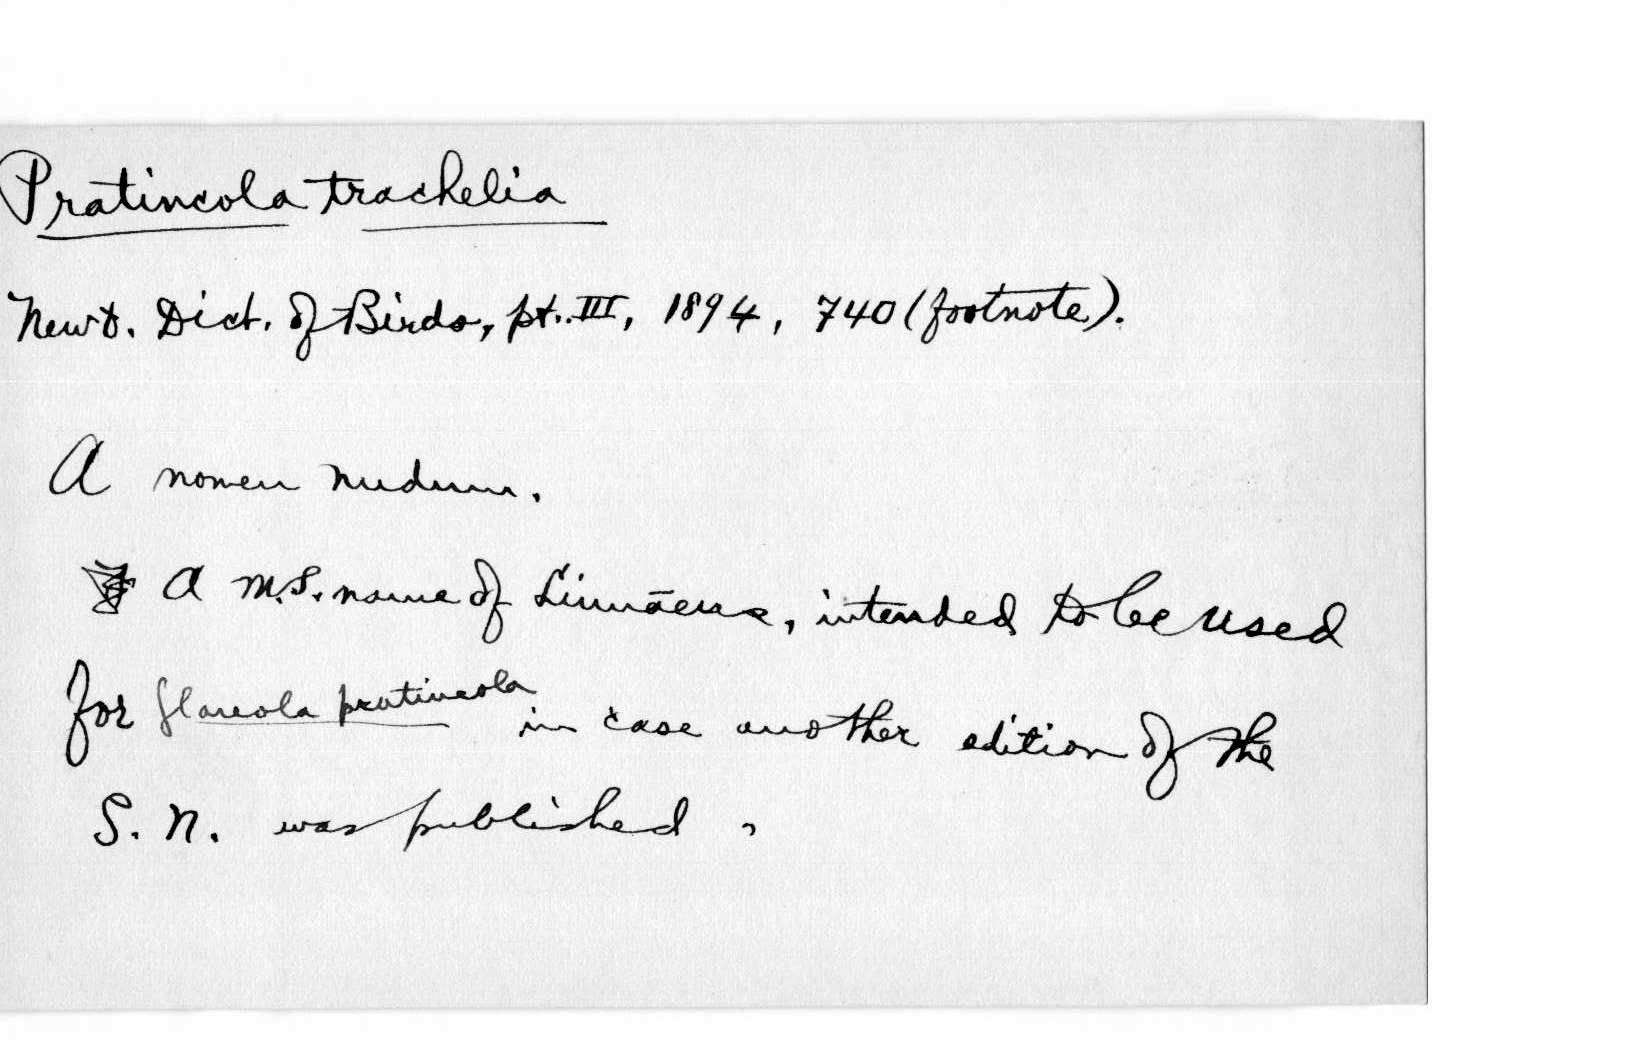 Pratincola trachelia
Newt. Dict. of Birds, pt. III, 1894, 740 (footnote).
A nomen nudum.
A M.S. name of Linnaeus, intended to be used
for Glareola pratincola in case another edition of the
S. N. was published.